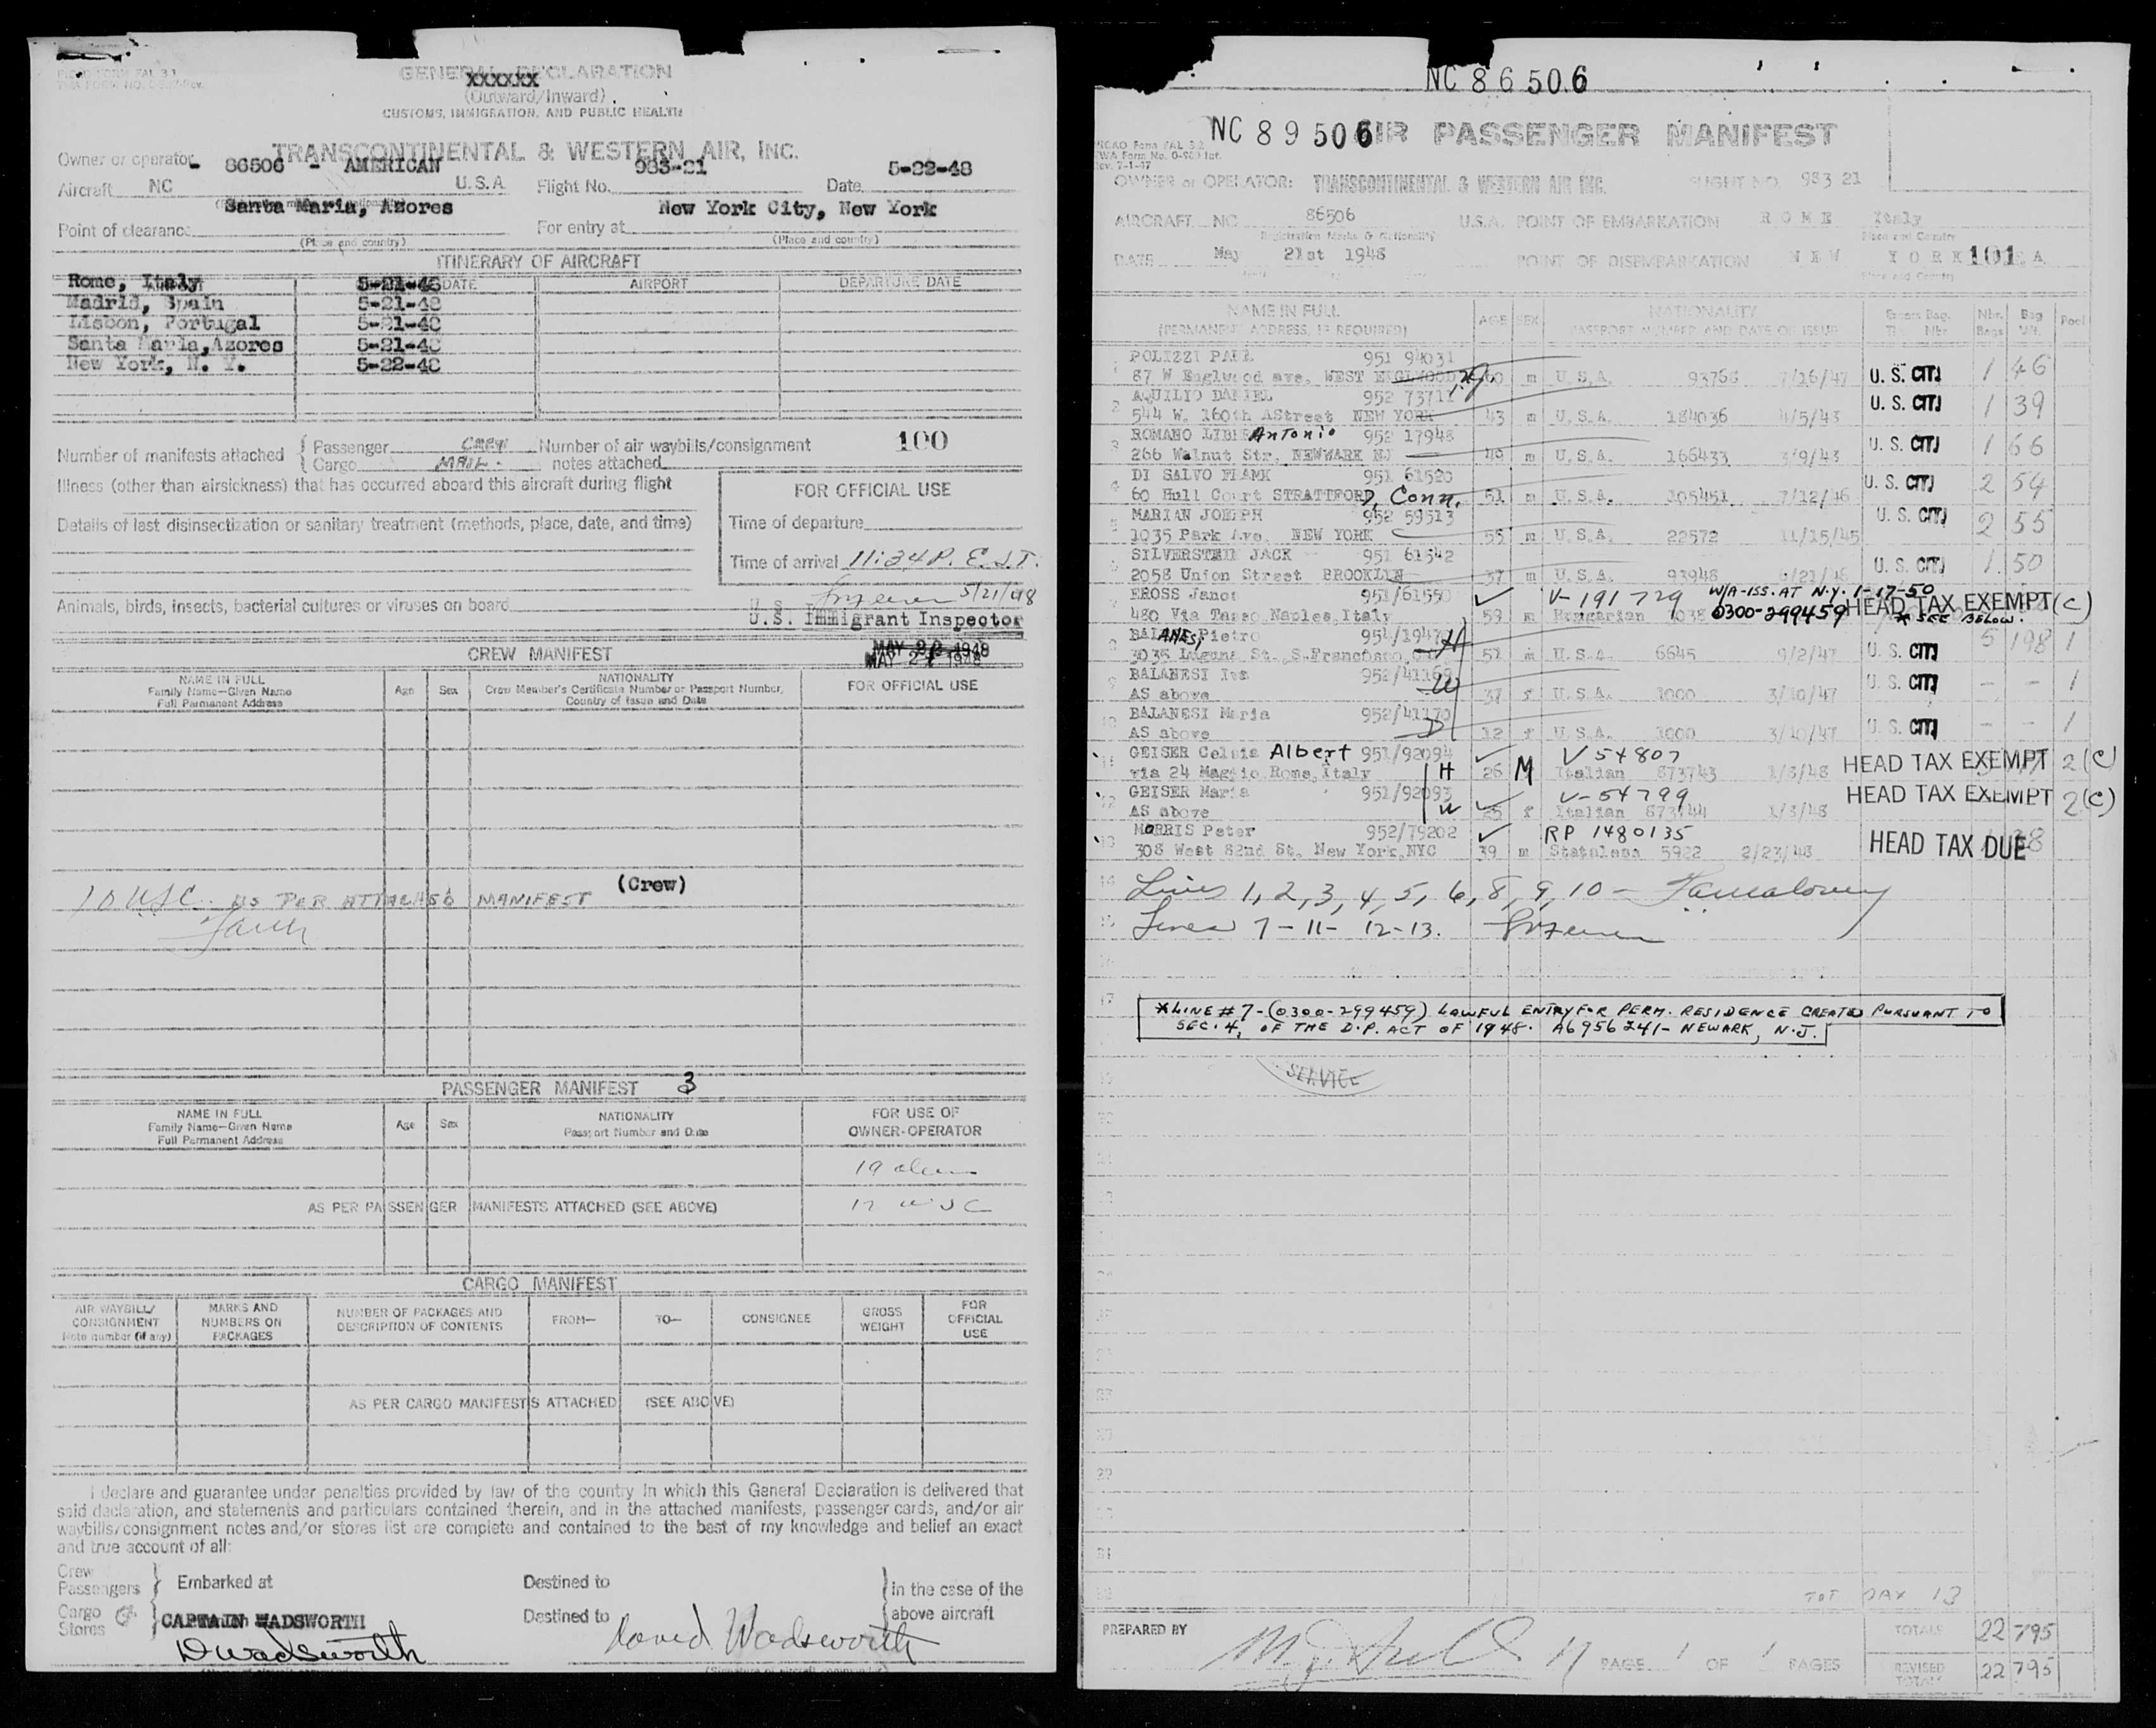 GENERAL DECLARATION
XXXXXX
(Outward/Inward)
CUSTOMS, IMMIGRATION, AND PUBLIC HEALTH
TRANSCONTINENTAL & WESTERN AIR, INC.
Owner or operator - 86506 - AMERICAN 983-21 5-22-48
Aircraft NC U.S.A. Flight No. Date
Santa Maria, Azores New York City, New York
Point of clearance For entry at
(Place and country) (Place and country)
ITINERARY OF AIRCRAFT
DATE AIRPORT DEPARTURE DATE
Rome, Italy 5-21-48
Madrid, Spain 5-21-48
Lisbon, Portugal 5-21-48
Santa Maria, Azores 5-21-48
New York, N. Y. 5-22-48
Number of manifests attached { Passenger Crew Number of air waybills/consignment 100
{ Cargo MAIL. notes attached
Illness (other than airsickness) that has occurred aboard this aircraft during flight
FOR OFFICIAL USE
Details of last disinsectization or sanitary treatment (methods, place, date, and time)
Time of departure
Time of arrival 11:24 P. E.S.T.
5/21/48
Animals, birds, insects, bacterial cultures or viruses on board
U.S. Immigrant Inspector
MAY 22 1948
MAY 21 1948
CREW MANIFEST
NAME IN FULL
Family Name—Given Name
Full Permanent Address
Age
Sex
NATIONALITY
Crew Member's Certificate Number or Passport Number,
Country of Issue and Date
FOR OFFICIAL USE
(Crew)
10 USC AS PER ATTACHED MANIFEST
PASSENGER MANIFEST 3
NAME IN FULL
Family Name—Given Name
Full Permanent Address
Age
Sex
NATIONALITY
Passport Number and Date
FOR USE OF
OWNER-OPERATOR
AS PER PASSENGER MANIFESTS ATTACHED (SEE ABOVE)
CARGO MANIFEST
AIR WAYBILL/
CONSIGNMENT
Note number (if any)
MARKS AND
NUMBERS ON
PACKAGES
NUMBER OF PACKAGES AND
DESCRIPTION OF CONTENTS
FROM—
TO—
CONSIGNEE
GROSS
WEIGHT
FOR
OFFICIAL
USE
AS PER CARGO MANIFESTS ATTACHED (SEE ABOVE)
I declare and guarantee under penalties provided by law of the country in which this General Declaration is delivered that
said declaration, and statements and particulars contained therein, and in the attached manifests, passenger cards, and/or air
waybills/consignment notes and/or stores list are complete and contained to the best of my knowledge and belief an exact
and true account of all:
Crew
Passengers
Cargo
Stores
Embarked at Destined to
Destined to
In the case of the
above aircraft
CAPTAIN WADSWORTH
D Wadsworth
David Wadsworth
NC 86506
NC 89506 AIR PASSENGER MANIFEST
OWNER or OPERATOR: TRANSCONTINENTAL & WESTERN AIR INC. FLIGHT NO. 983 21
AIRCRAFT NC 86506 U.S.A. POINT OF EMBARKATION ROME Italy
Registration Marks & Nationality Place and Country
DATE May 21st 1948 POINT OF DISEMBARKATION NEW YORK 101
Place and Country
NAME IN FULL
(PERMANENT ADDRESS, IF REQUIRED)
AGE SEX
NATIONALITY
PASSPORT NUMBER AND DATE OF ISSUE
Nbr. Bags
Bag Wt.
Pool
1 POLIZZI PAUL 951 94031
87 W Englwood ave, WEST ENGLWOOD N.J. 60 m U.S.A. 93768 7/16/47 U. S. CITJ 1 46
2 AQUILIO DANIEL 952 73711
544 W. 160th AStreet NEW YORK 43 m U.S.A. 184036 4/5/43 U. S. CITJ 1 39
3 ROMANO LIBER Antonio 952 17948
266 Walnut Str, NEWWARK NJ 49 m U.S.A. 166433 3/9/43 U. S. CITJ 1 66
4 DI SALVO FRANK 951 61520
60 Hull Court STRATTFORD, Conn. 51 m U.S.A. 105451 7/12/46 U. S. CITJ 2 54
5 MARIAN JOSEPH 952 59513
1035 Park Ave. NEW YORK 55 m U.S.A. 22572 11/15/45 U. S. CITJ 2 55
6 SILVERSTEIN JACK 951 61542
2058 Union Street BROOKLYN 37 m U.S.A. 93948 U. S. CITJ 1 50
7 EROSS Janos 951/61550 V-191729 W/A-ISS. AT N.Y. 1-17-50
480 Via Tasso Naples, Italy 59 m Hungarian 0300-299459 HEAD TAX EXEMPT (C)
* SEE BELOW.
8 BALANESI Pietro H
3035 Laguna St. S.Francosco 51 m U.S.A. 6645 9/2/47 U. S. CITJ 5 198 1
9 BALANESI Iva 952/41169
AS above W 37 f U.S.A. 1000 3/10/47 U. S. CITJ - - 1
10 BALANESI Maria 952/41170
AS above D 12 f U.S.A. 1000 3/10/47 U. S. CITJ - - 1
11 GEISER Albert 951/92094 V 54807
via 24 Maggio Rome, Italy H 26 M Italian 673743 1/3/48 HEAD TAX EXEMPT 2 (C)
12 GEISER Maria 951/92093 V-54799
AS above W 25 f Italian 673744 1/3/48 HEAD TAX EXEMPT 2 (C)
13 MORRIS Peter 952/79202 RP 1480135
308 West 82nd St. New York, NYC 39 m Stateless 5922 2/23/48 HEAD TAX DUE
14 Lines 1, 2, 3, 4, 5, 6, 8, 9, 10 -
15 Lines 7 - 11 - 12 - 13.
*LINE # 7 - (0300-299459) LAWFUL ENTRY FOR PERM. RESIDENCE CREATED PURSUANT TO
SEC. 4, OF THE D.P. ACT OF 1948. A6956241 - NEWARK, N.J.
SERVICE
TOT PAX 13
PREPARED BY
PAGE 1 OF 1 PAGES
TOTALS 22 795
REVISED TOTALS 22 795